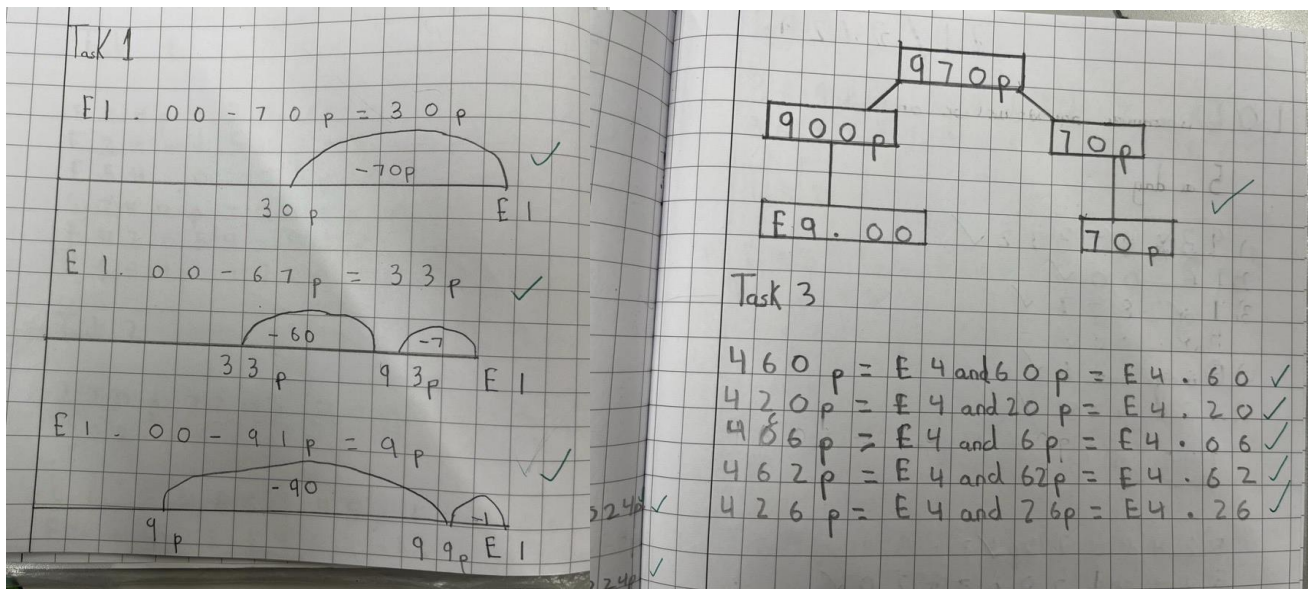 Task 1
£1.00-70p=30p
-70p
30p £1
£1.00-67p=33p
-60 -7
33p 93p £1
£1.00-91p=9p
-90 -1
9p 99p £1
970p
900p 70p
£9.00 70p
Task 3
460p=£4 and 60p=£4.60
420p=£4 and 20p=£4.20
406p=£4 and 6p=£4.06
462p=£4 and 62p=£4.62
426p=£4 and 26p=£4.26
224p
224p